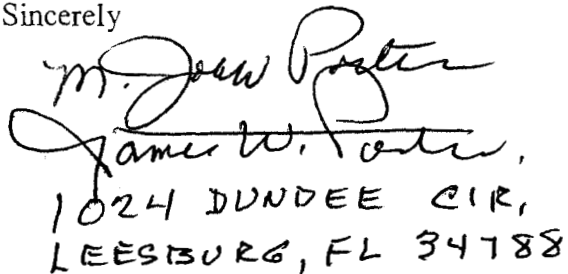 Sincerely
M. Joan Porter
James W. Porter.
1024 DUNDEE CIR,
LEESBURG, FL 34788